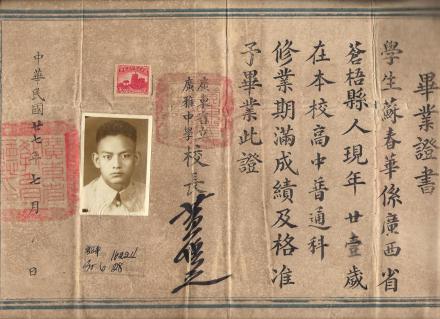 畢業證書
學生蘇春華係廣西省
蒼梧縣人現年廿壹歲
在本校高中普通科
修業期滿成績及格准
予畢業此證
廣東省立
廣雅中學校長
中華民國廿七年七月 日